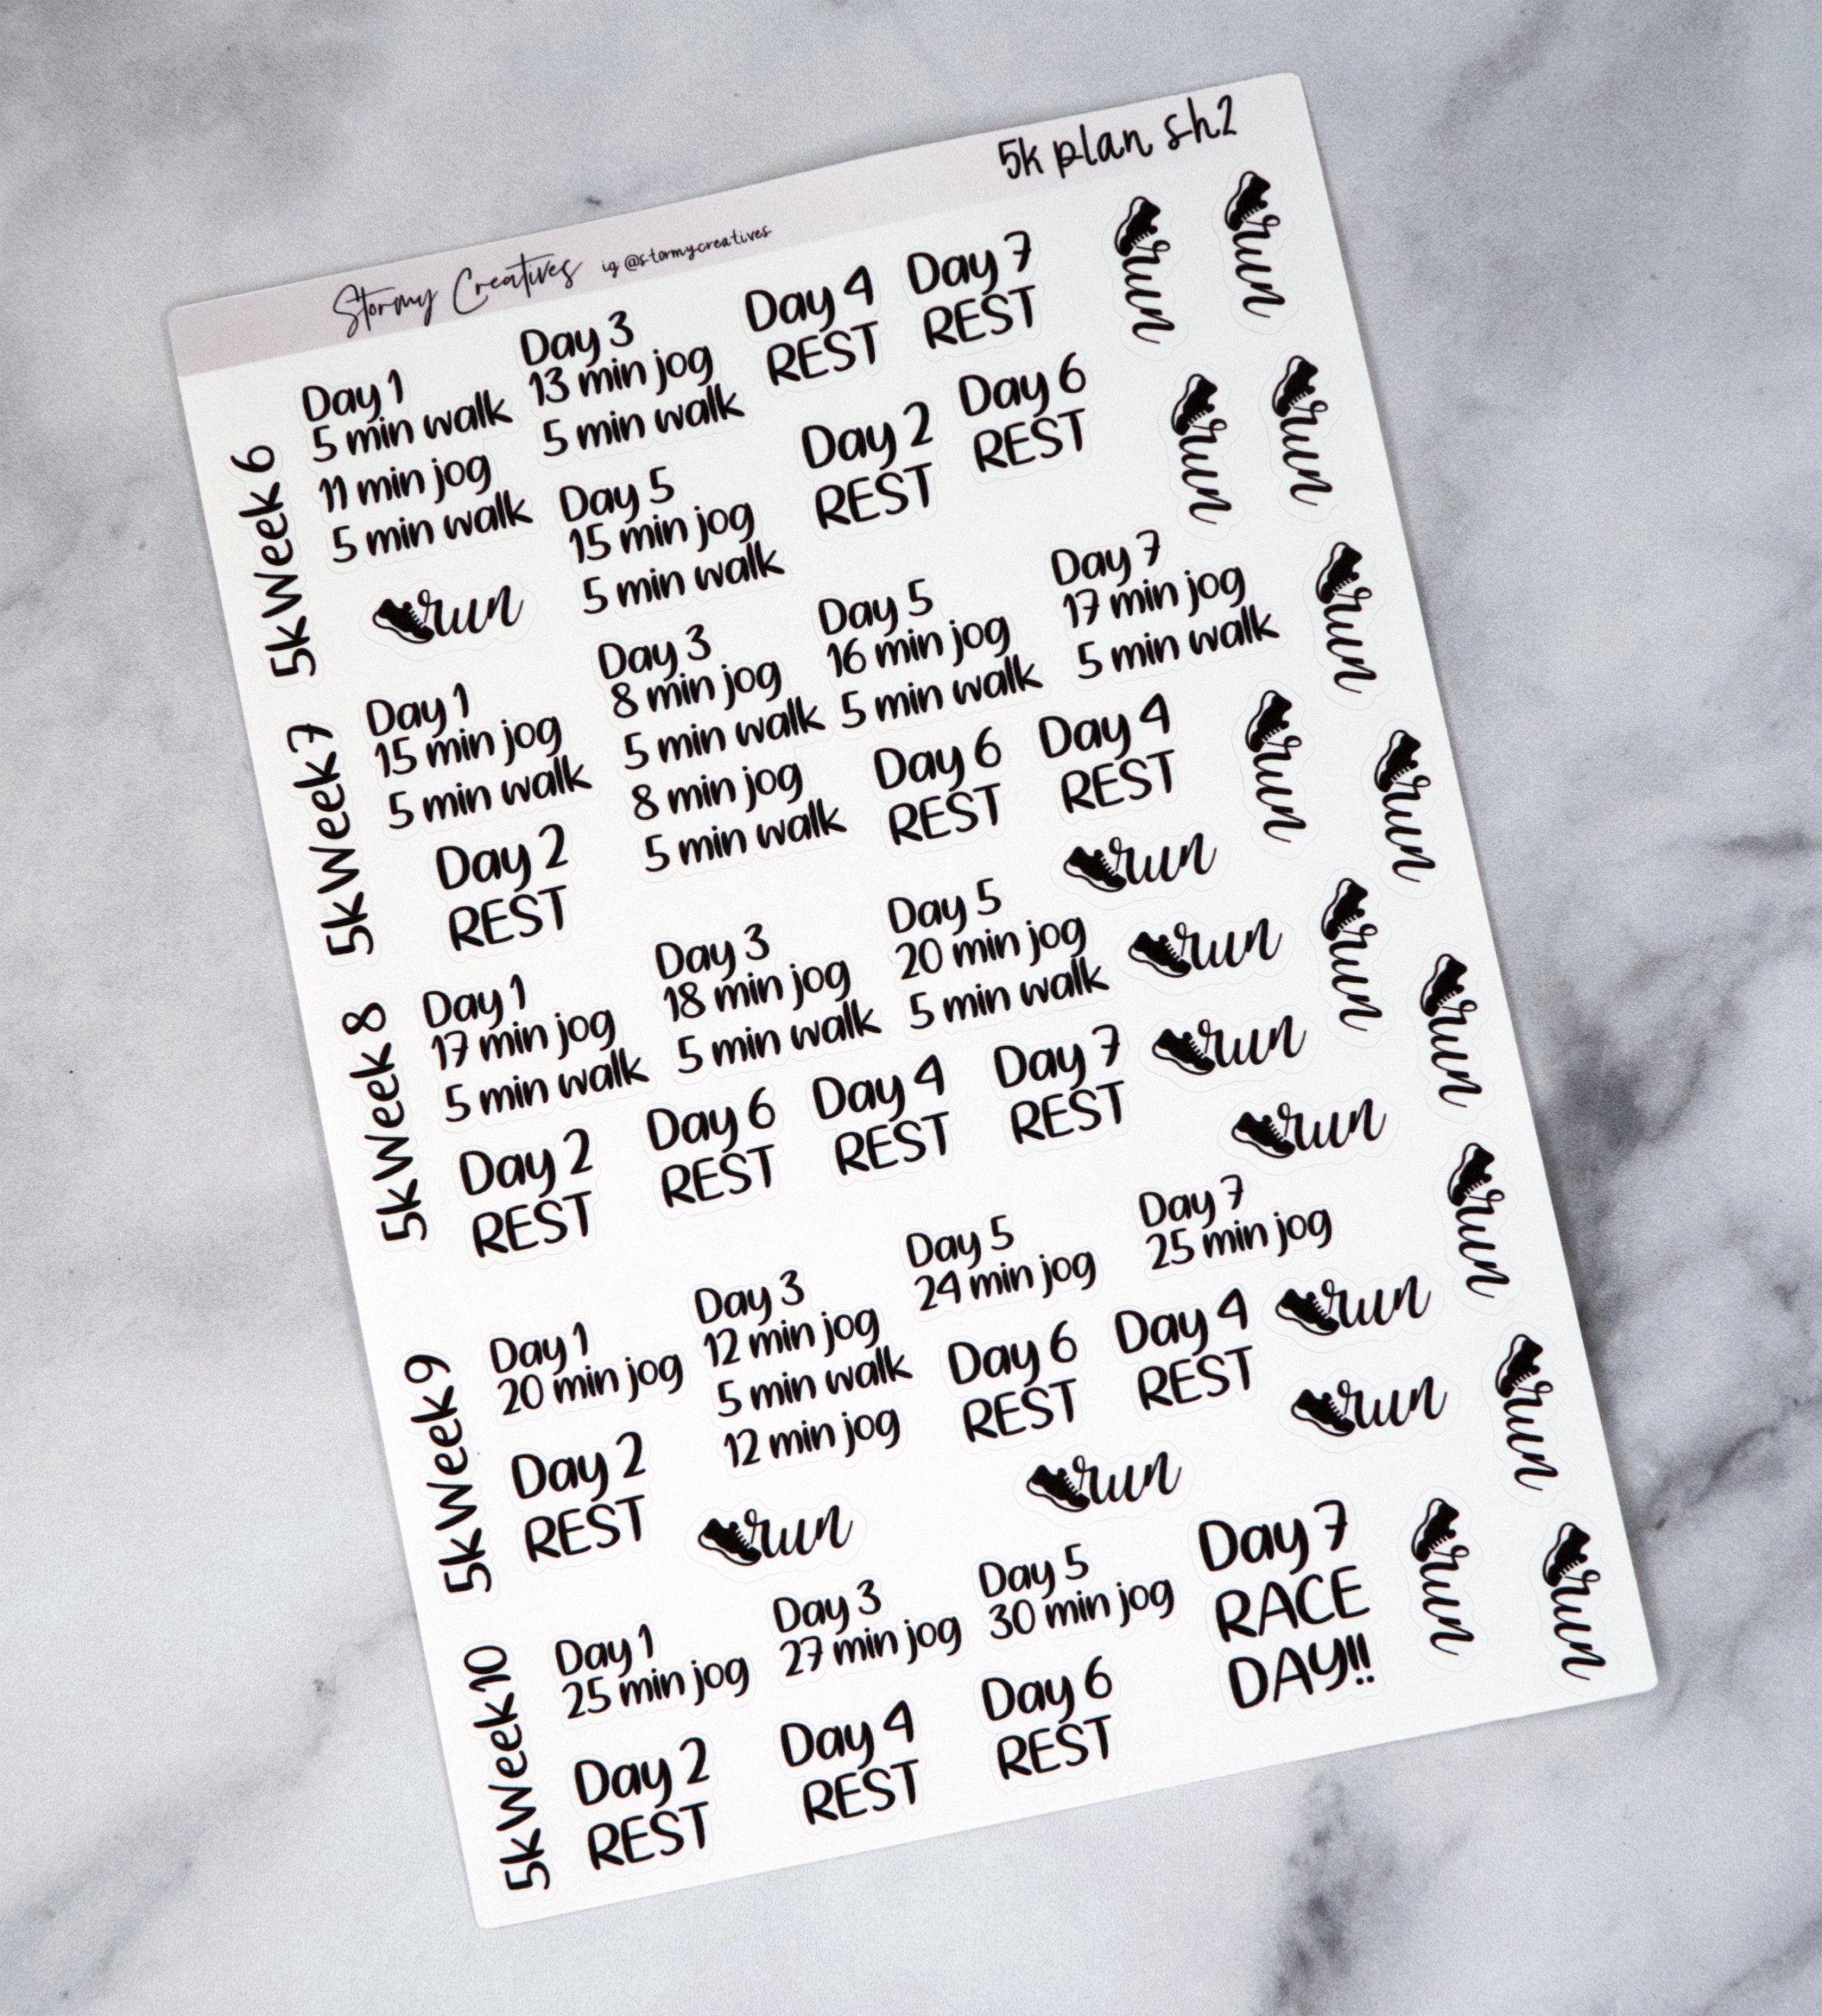 Stormy Creatives ig @stormycreatives
5k plan sh2
5k Week 6
Day 1
5 min walk
11 min jog
5 min walk
Day 3
13 min jog
5 min walk
Day 4
REST
Day 7
REST
run
run
run
Day 5
15 min jog
5 min walk
Day 2
REST
Day 6
REST
run
run
5k Week 7
Day 1
15 min jog
5 min walk
Day 2
REST
Day 3
8 min jog
5 min walk
8 min jog
5 min walk
Day 5
16 min jog
5 min walk
Day 7
17 min jog
5 min walk
Day 6
REST
Day 4
REST
run
run
run
run
5k Week 8
Day 1
17 min jog
5 min walk
Day 3
18 min jog
5 min walk
Day 5
20 min jog
5 min walk
run
run
run
Day 2
REST
Day 6
REST
Day 4
REST
Day 7
REST
run
run
5k Week 9
Day 1
20 min jog
Day 2
REST
Day 3
12 min jog
5 min walk
12 min jog
Day 5
24 min jog
Day 7
25 min jog
Day 6
REST
Day 4
REST
run
run
run
run
run
run
5k Week 10
Day 1
25 min jog
Day 3
27 min jog
Day 5
30 min jog
Day 7
RACE
DAY!!
Day 2
REST
Day 4
REST
Day 6
REST
run
run